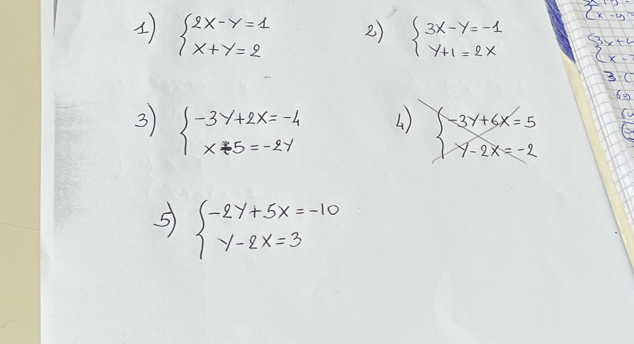 1) { 2X-Y=1
X+Y=2
2) { 3X-Y=-1
Y+1=2X
3) { -3Y+2X=-4
X-5=-2Y
4) { -3Y+6X=5
Y-2X=-2
5) { -2Y+5X=-10
Y-2X=3